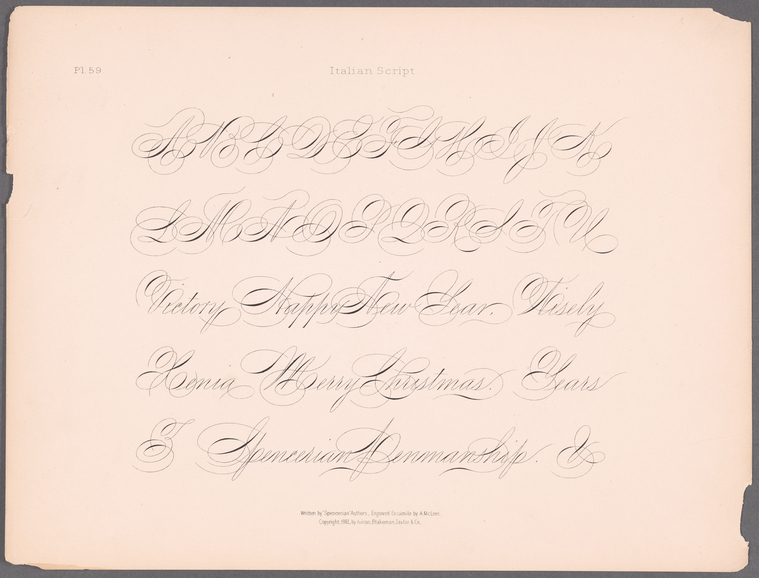 Pl. 59
Italian Script
A B C D E F G H I J K
L M N O P Q R S T U
Victory Happy New Year. Wisely
Xenia Merry Christmas. Years
Z Spencerian Penmanship. &
Written by "Spencerian Authors", Engraved Facsimile by A. McLees.
Copyright, 1881, by Ivison, Blakeman, Taylor & Co.